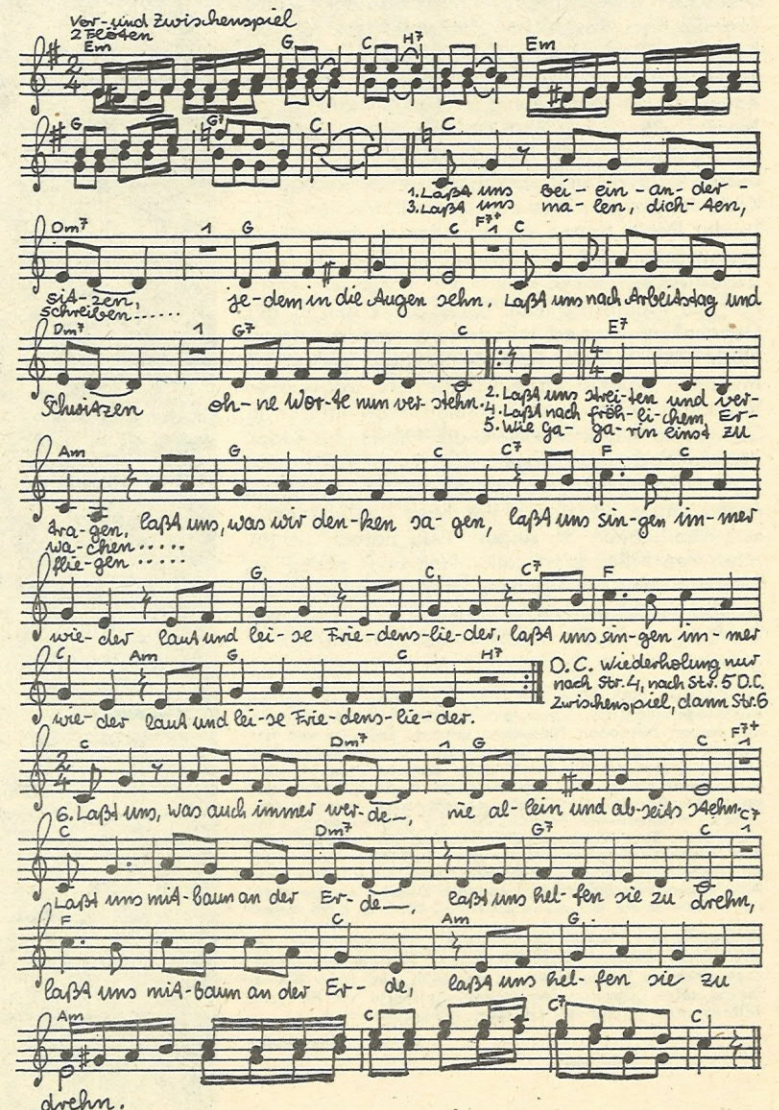 Vor- und Zwischenspiel
2 Flöten
Em G C H7 Em
G G7 C C
1. Laßt uns bei - ein - an - der -
3. Laßt uns ma - len, dich - ten,
Dm7 1 G C F7+ 1 C
sit - zen, je - dem in die Augen sehn. Laßt uns nach Arbeitstag und
schreiben......
Dm7 1 G7 C E7
Schwitzen oh - ne Wor - te nun ver - stehn. 2. Laßt uns strei - ten und ver -
4. Laßt nach fröh - li - chem Er -
5. Wie Ga - ga - rin einst zu
Am G C C7 F C
tra - gen, laßt uns, was wir den - ken sa - gen, laßt uns sin - gen im - mer
wa - chen.....
flie - gen.....
G C C7 F
wie - der laut und lei - se Frie - dens - lie - der, laßt uns sin - gen im - mer
C Am G C H7
wie - der laut und lei - se Frie - dens - lie - der.
D. C. Wiederholung nur
nach Str. 4, nach Str. 5 D.C.
Zwischenspiel, dann Str. 6
2/4 C Dm7 1 G C F7+ 1
6. Laßt uns, was auch immer wer - de —, nie al - lein und ab - seits stehn. C7
C Dm7 G7 C 1
Laßt uns mit - baun an der Er - de —, laßt uns hel - fen sie zu drehn,
F C Am G
laßt uns mit - baun an der Er - de, laßt uns hel - fen sie zu
Am C C7 C
drehn.